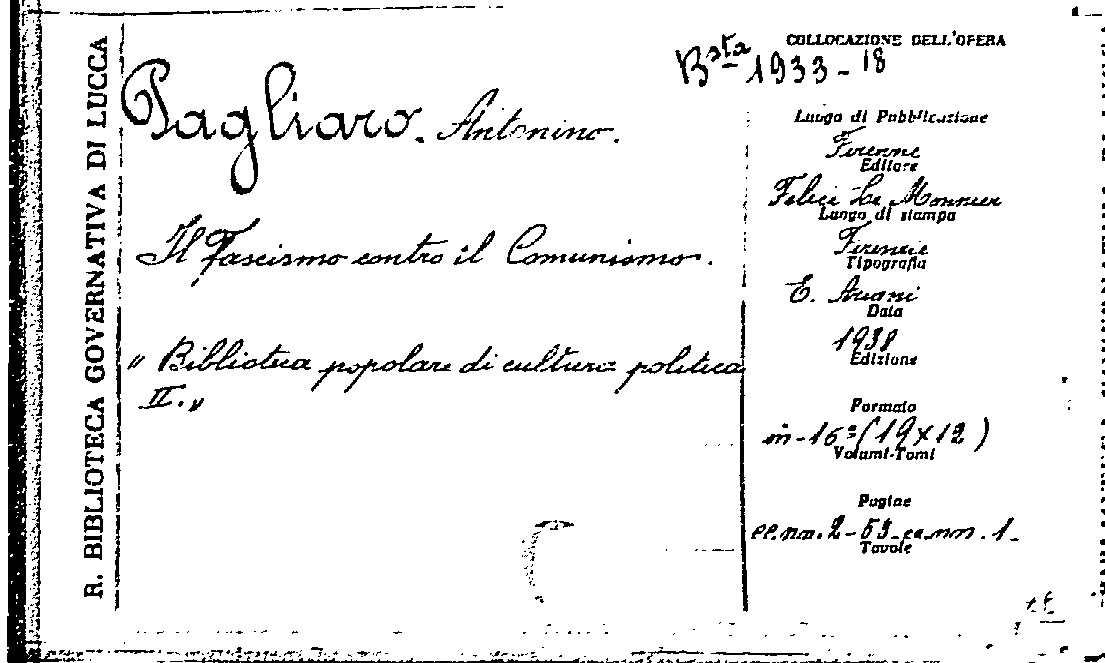 R. BIBLIOTECA GOVERNATIVA DI LUCCA
Pagliaro. Antonino.
Il Fascismo contro il Comunismo.
„ Biblioteca popolare di cultura politica
II. „
COLLOCAZIONE DELL'OPERA
Bsta 1933 - 18
Luogo di Pubblicazione
Firenze
Editore
Felice Le Monnier
Luogo di stampa
Firenze
Tipografia
E. Ariani
Data
1938
Edizione
Formato
in - 16º (19 x 12)
Volumi-Tomi
Pagine
pp. nn. 2 - 53 - nn. 1 -
Tavole